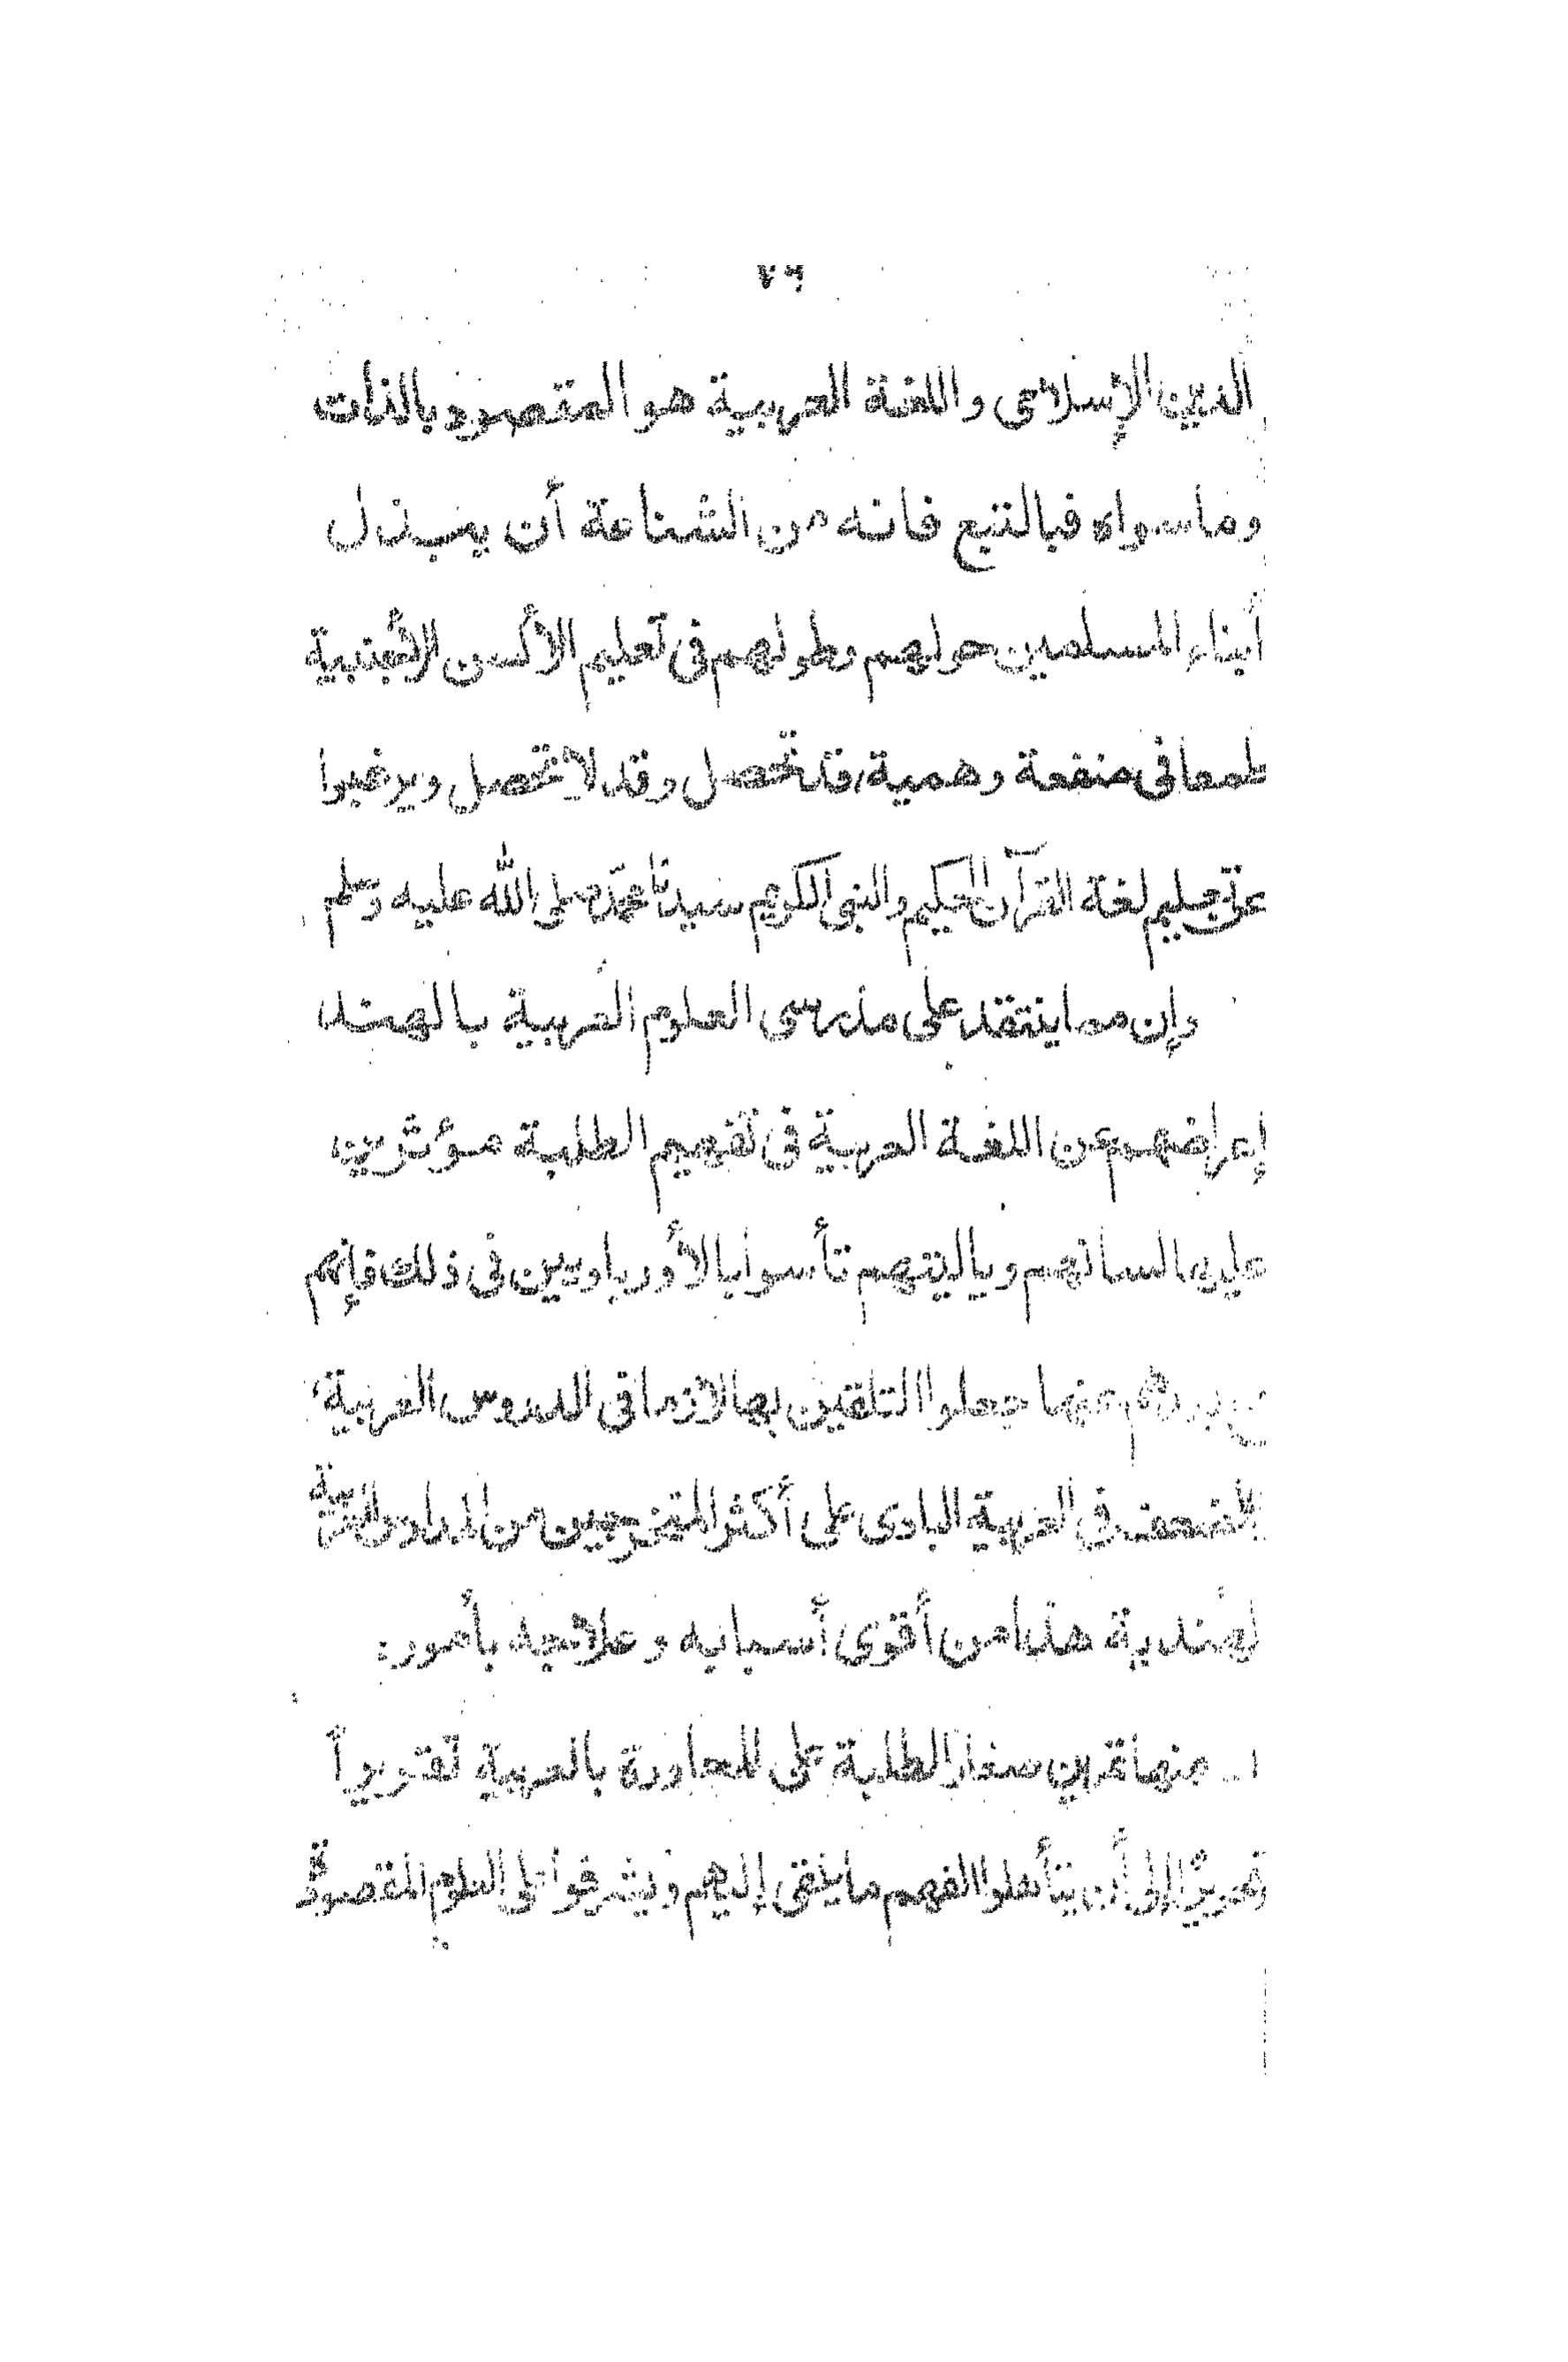 الدين الإسلامى واللغة العربية هو المقصود بالذات
وماسواه فبالتبع فانه من الشناعة أن يبذل
أبناء المسلمين حولهم وطولهم فى تعليم الألسن الأجنبية
طمعا فى منفعة وهمية، قد تحصل وقد لا تحصل ويرغبوا
عن تعليم لغة القرآن الحكيم والنبى الكريم سيدنا محمد صلى الله عليه وسلم
وإن مما ينتقد على مدرسى العلوم العربية بالهند
إعراضهم عن اللغة العربية فى تفهيم الطلبة مؤثرين
عليها لسانهم وياليتهم تأسوا بالأورباويين فى ذلك فإنهم
عنها جعلوا التلقين بها لازما فى الدروس العربية،
فى العربية البادى على أكثر المتخرجين من المدارس العربية
الهندية هذا من أقوى أسبابه وعلاجه بأمور:
١ - منها تمرين صغار الطلبة على المحاورة بالعربية تقريراً
وتحريرًا إلى أن يتأهلوا لفهم ما يلقى إليهم ويشرفوا على العلوم المقصودة